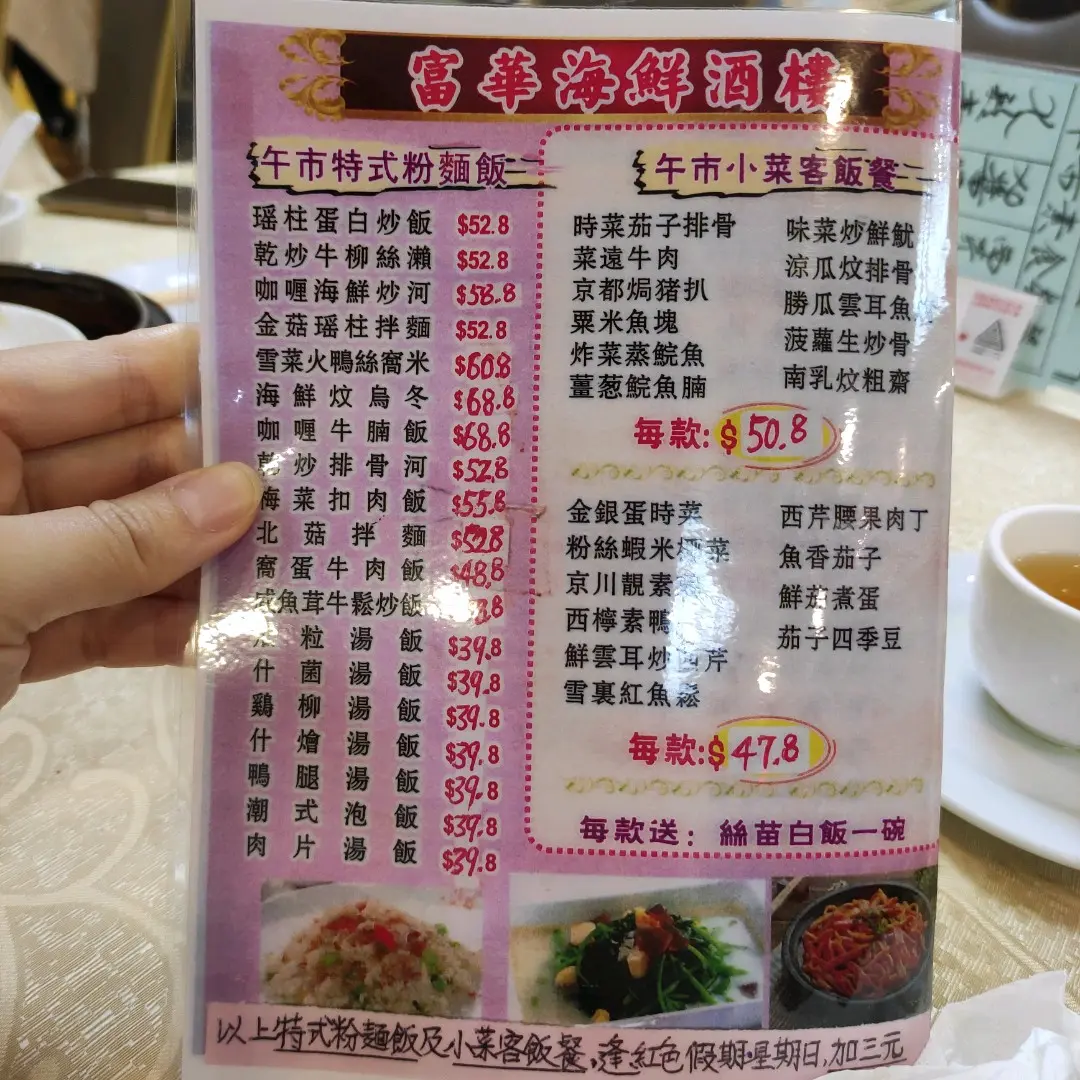 富華海鮮酒樓
午市特式粉麵飯
瑶柱蛋白炒飯 $52.8
乾炒牛柳絲瀨 $52.8
咖喱海鮮炒河 $58.8
金菇瑶柱拌麵 $52.8
雪菜火鴨絲窩米 $60.8
海鮮炆烏冬 $68.8
咖喱牛腩飯 $68.8
乾炒排骨河 $52.8
梅菜扣肉飯 $55.8
北菇拌麵 $52.8
窩蛋牛肉飯 $48.8
咸魚茸牛鬆炒飯
粒湯飯 $39.8
什菌湯飯 $39.8
鷄柳湯飯 $39.8
什燴湯飯 $39.8
鴨腿湯飯 $39.8
潮式泡飯 $39.8
肉片湯飯 $39.8
午市小菜客飯餐
時菜茄子排骨
菜遠牛肉
京都焗猪扒
粟米魚塊
炸菜蒸鯇魚
薑葱鯇魚腩
味菜炒鮮魷
涼瓜炆排骨
勝瓜雲耳魚
菠蘿生炒骨
南乳炆粗齋
每款:$50.8
金銀蛋時菜
粉絲蝦米菜
京川靚素
西檸素鴨
鮮雲耳炒西芹
雪裏紅魚鬆
西芹腰果肉丁
魚香茄子
鮮茄煮蛋
茄子四季豆
每款:$47.8
每款送：絲苗白飯一碗
以上特式粉麵飯及小菜客飯餐,逢紅色假期星期日,加三元